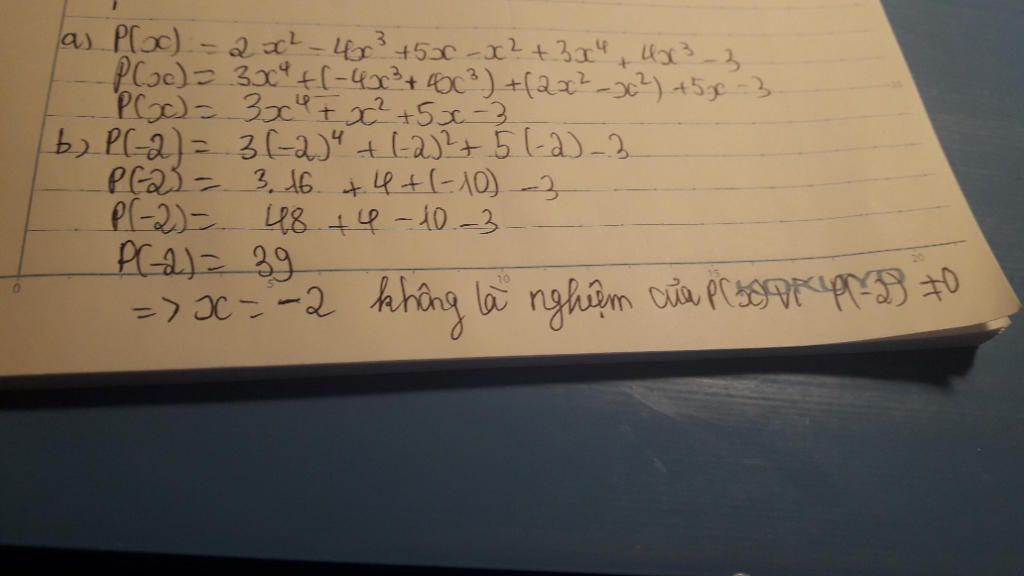 a) P(x) = 2x² - 4x³ + 5x - x² + 3x⁴ + 4x³ - 3
P(x) = 3x⁴ + (-4x³ + 4x³) + (2x² - x²) + 5x - 3
P(x) = 3x⁴ + x² + 5x - 3
b) P(-2) = 3(-2)⁴ + (-2)² + 5(-2) - 3
P(-2) = 3.16 + 4 + (-10) - 3
P(-2) = 48 + 4 - 10 - 3
P(-2) = 39
0 5 10 15 20
=> x = -2 không là nghiệm của P(x) vì P(-2) ≠ 0